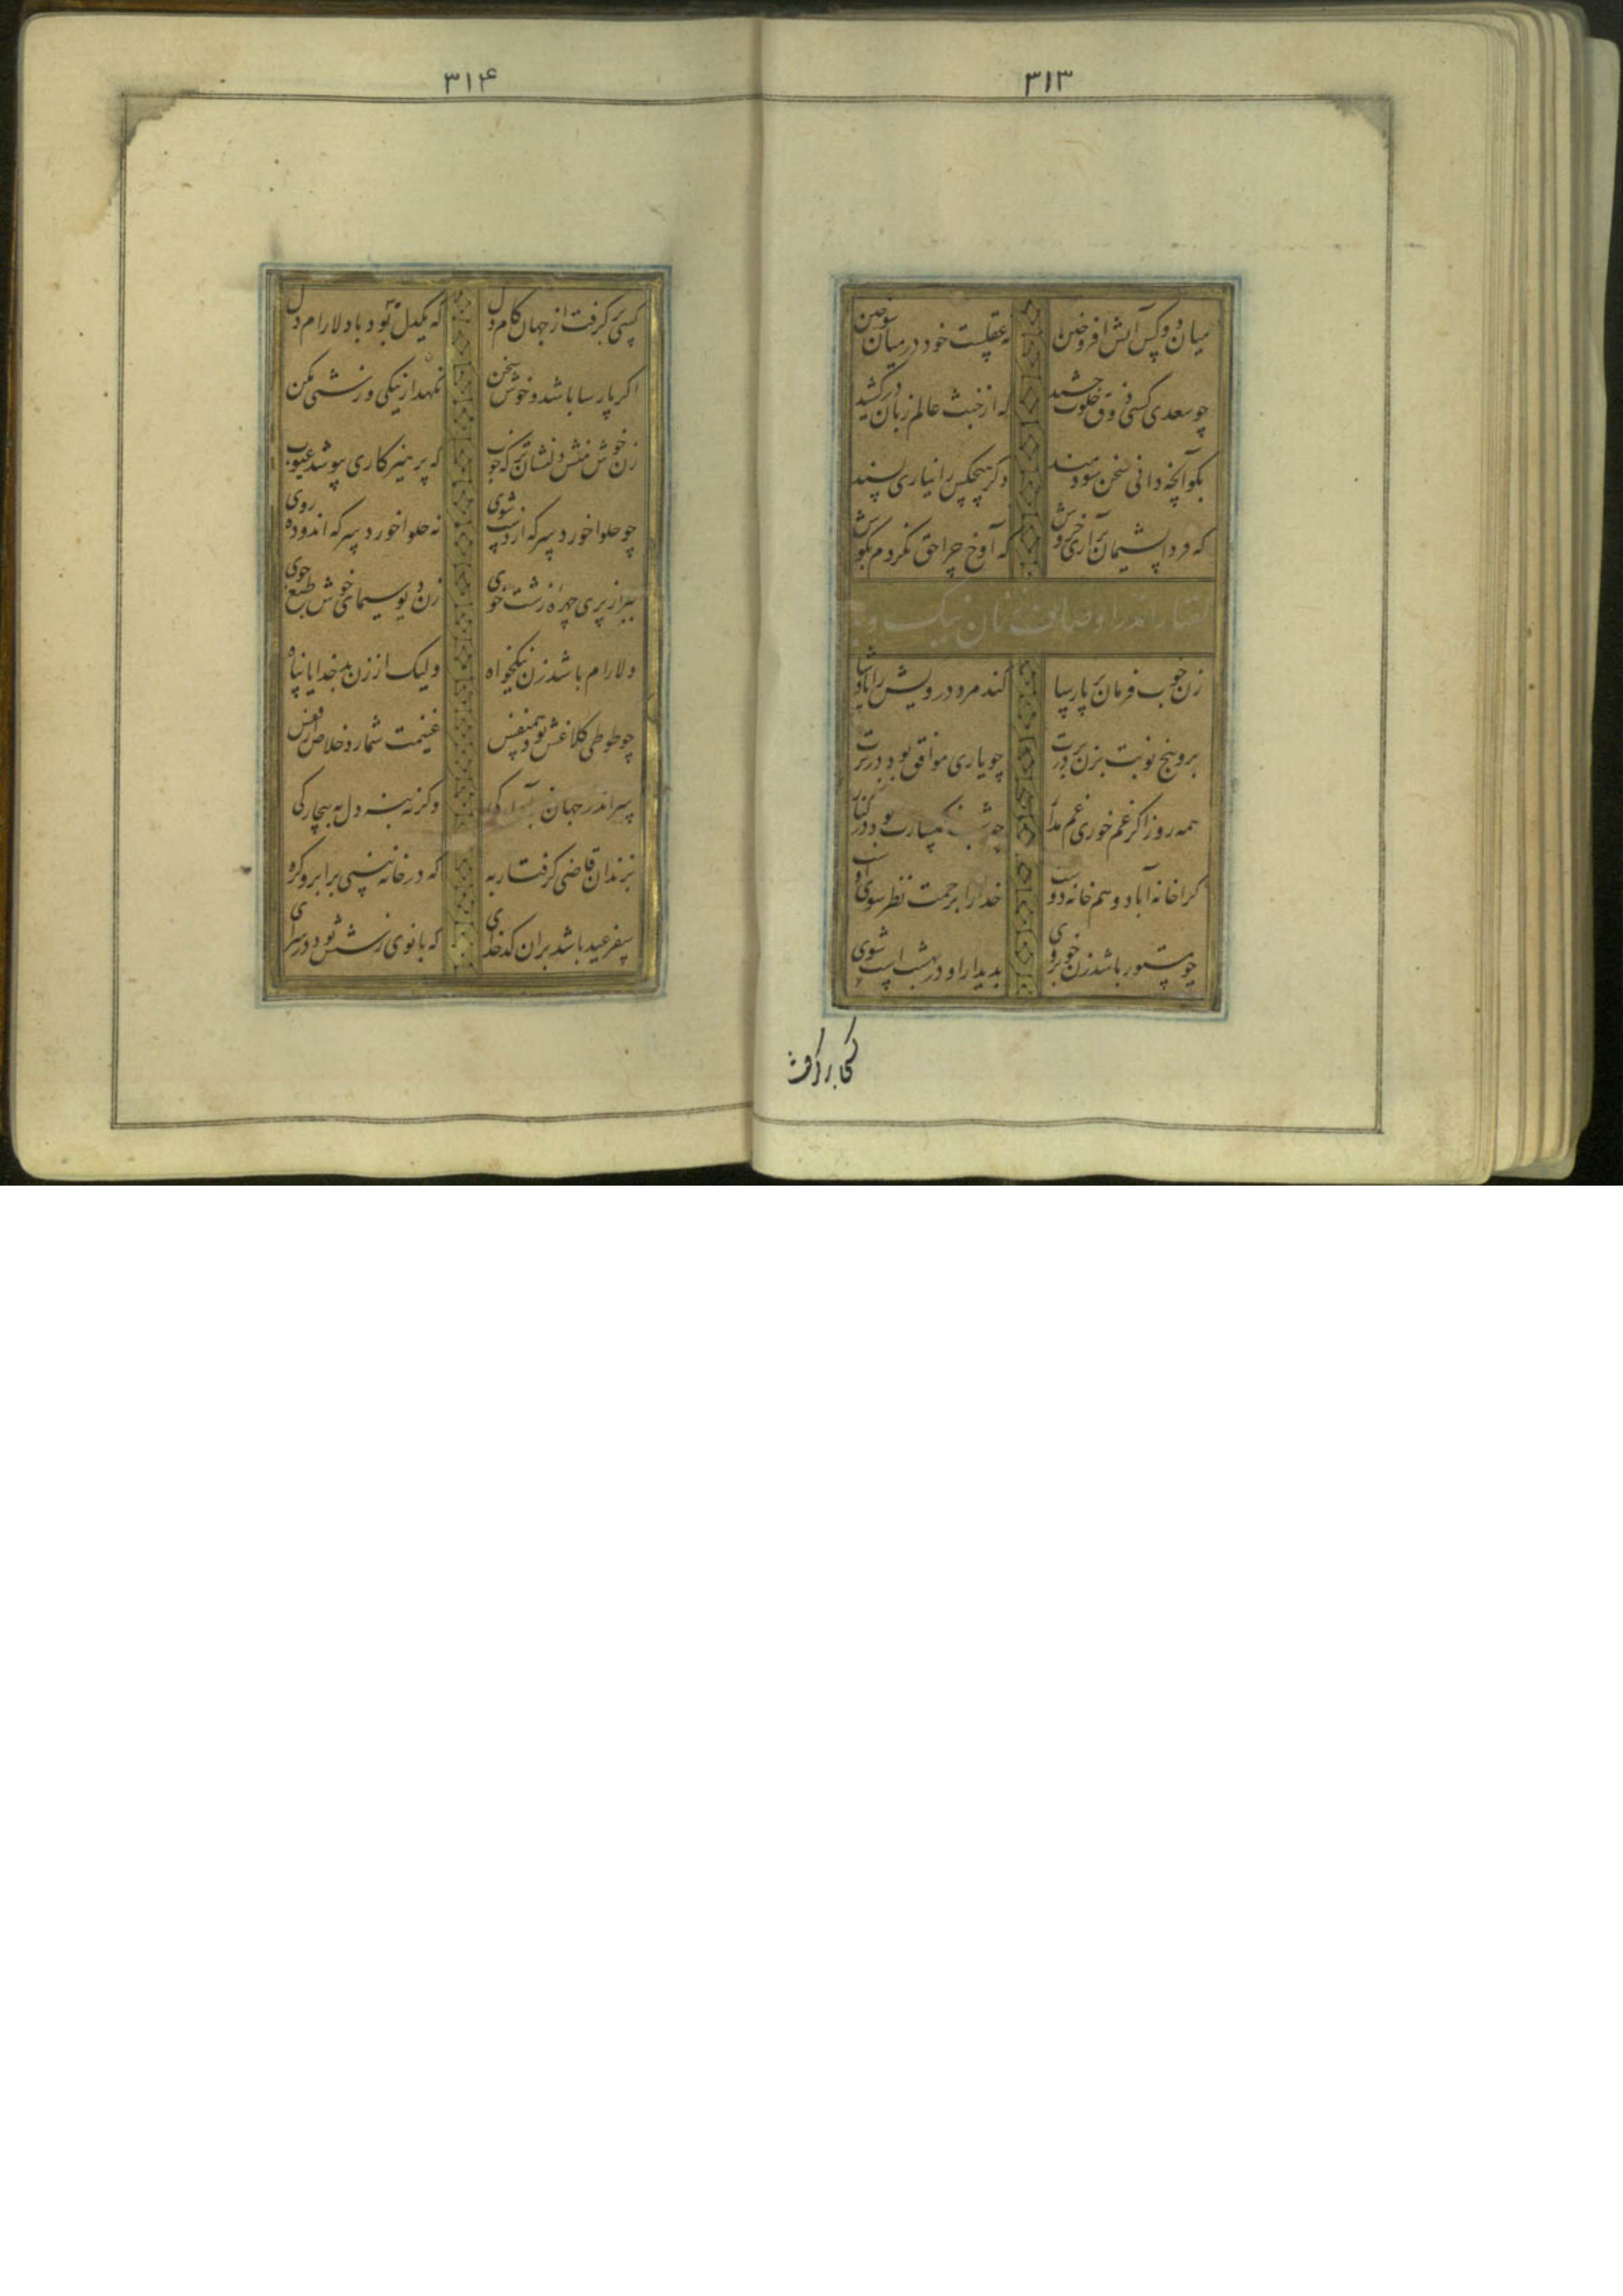 ۳۱۳
میان دو کس آتش افروختن نه عقلست خود در میان سوختن
چو سعدی کسی ذوق خلوت چشید که از خبث عالم زبان درکشید
بگو آنچه دانی سخن سودمند وگر هیچکس را نیاری پسند
که فردا پشیمان برآری خروش که آوخ چرا حق نکردم بگوش
گفتار اندر اوصاف زنان نیک و بد
زن خوب فرمان بر پارسا کند مرد درویش را پادشا
برو پنج نوبت بزن بر درت چو یاری موافق بود در برت
همه روز اگر غم خوری غم مدار چو شب غمگسارت بود در کنار
کرا خانه آباد و همخانه دوست خدا را برحمت نظر سوی اوست
چو مستور باشد زن خوبروی بدیدار او در بهشت است شوی
۳۱۴
کسی برگرفت از جهان کام دل که یکدل بود با دلارام دل
اگر پارسا باشد و خوش سخن نگه دار نیکی و زشتی مکن
زن خوش منش دلنشان تر که خوب که پرهیزکاری بپوشد عیوب
چو حلوا خورد سرکه از دست شوی نه حلوا خورد سرکه اندوده روی
ببر از پری چهره زشت خوی زن دیو سیمای خوش طبع جوی
دلارام باشد زن نیکخواه ولیک از زن بد خدایا پناه
چو طوطی کلاغش بود همنفس غنیمت شمارد خلاص از قفس
سر اندر جهان به آوارگی وگرنه بنه دل به بیچارگی
بزندان قاضی گرفتار به که در خانه بینی بر ابرو گره
سفر عید باشد بران کدخدای که بانوی زشتش بود در سرای